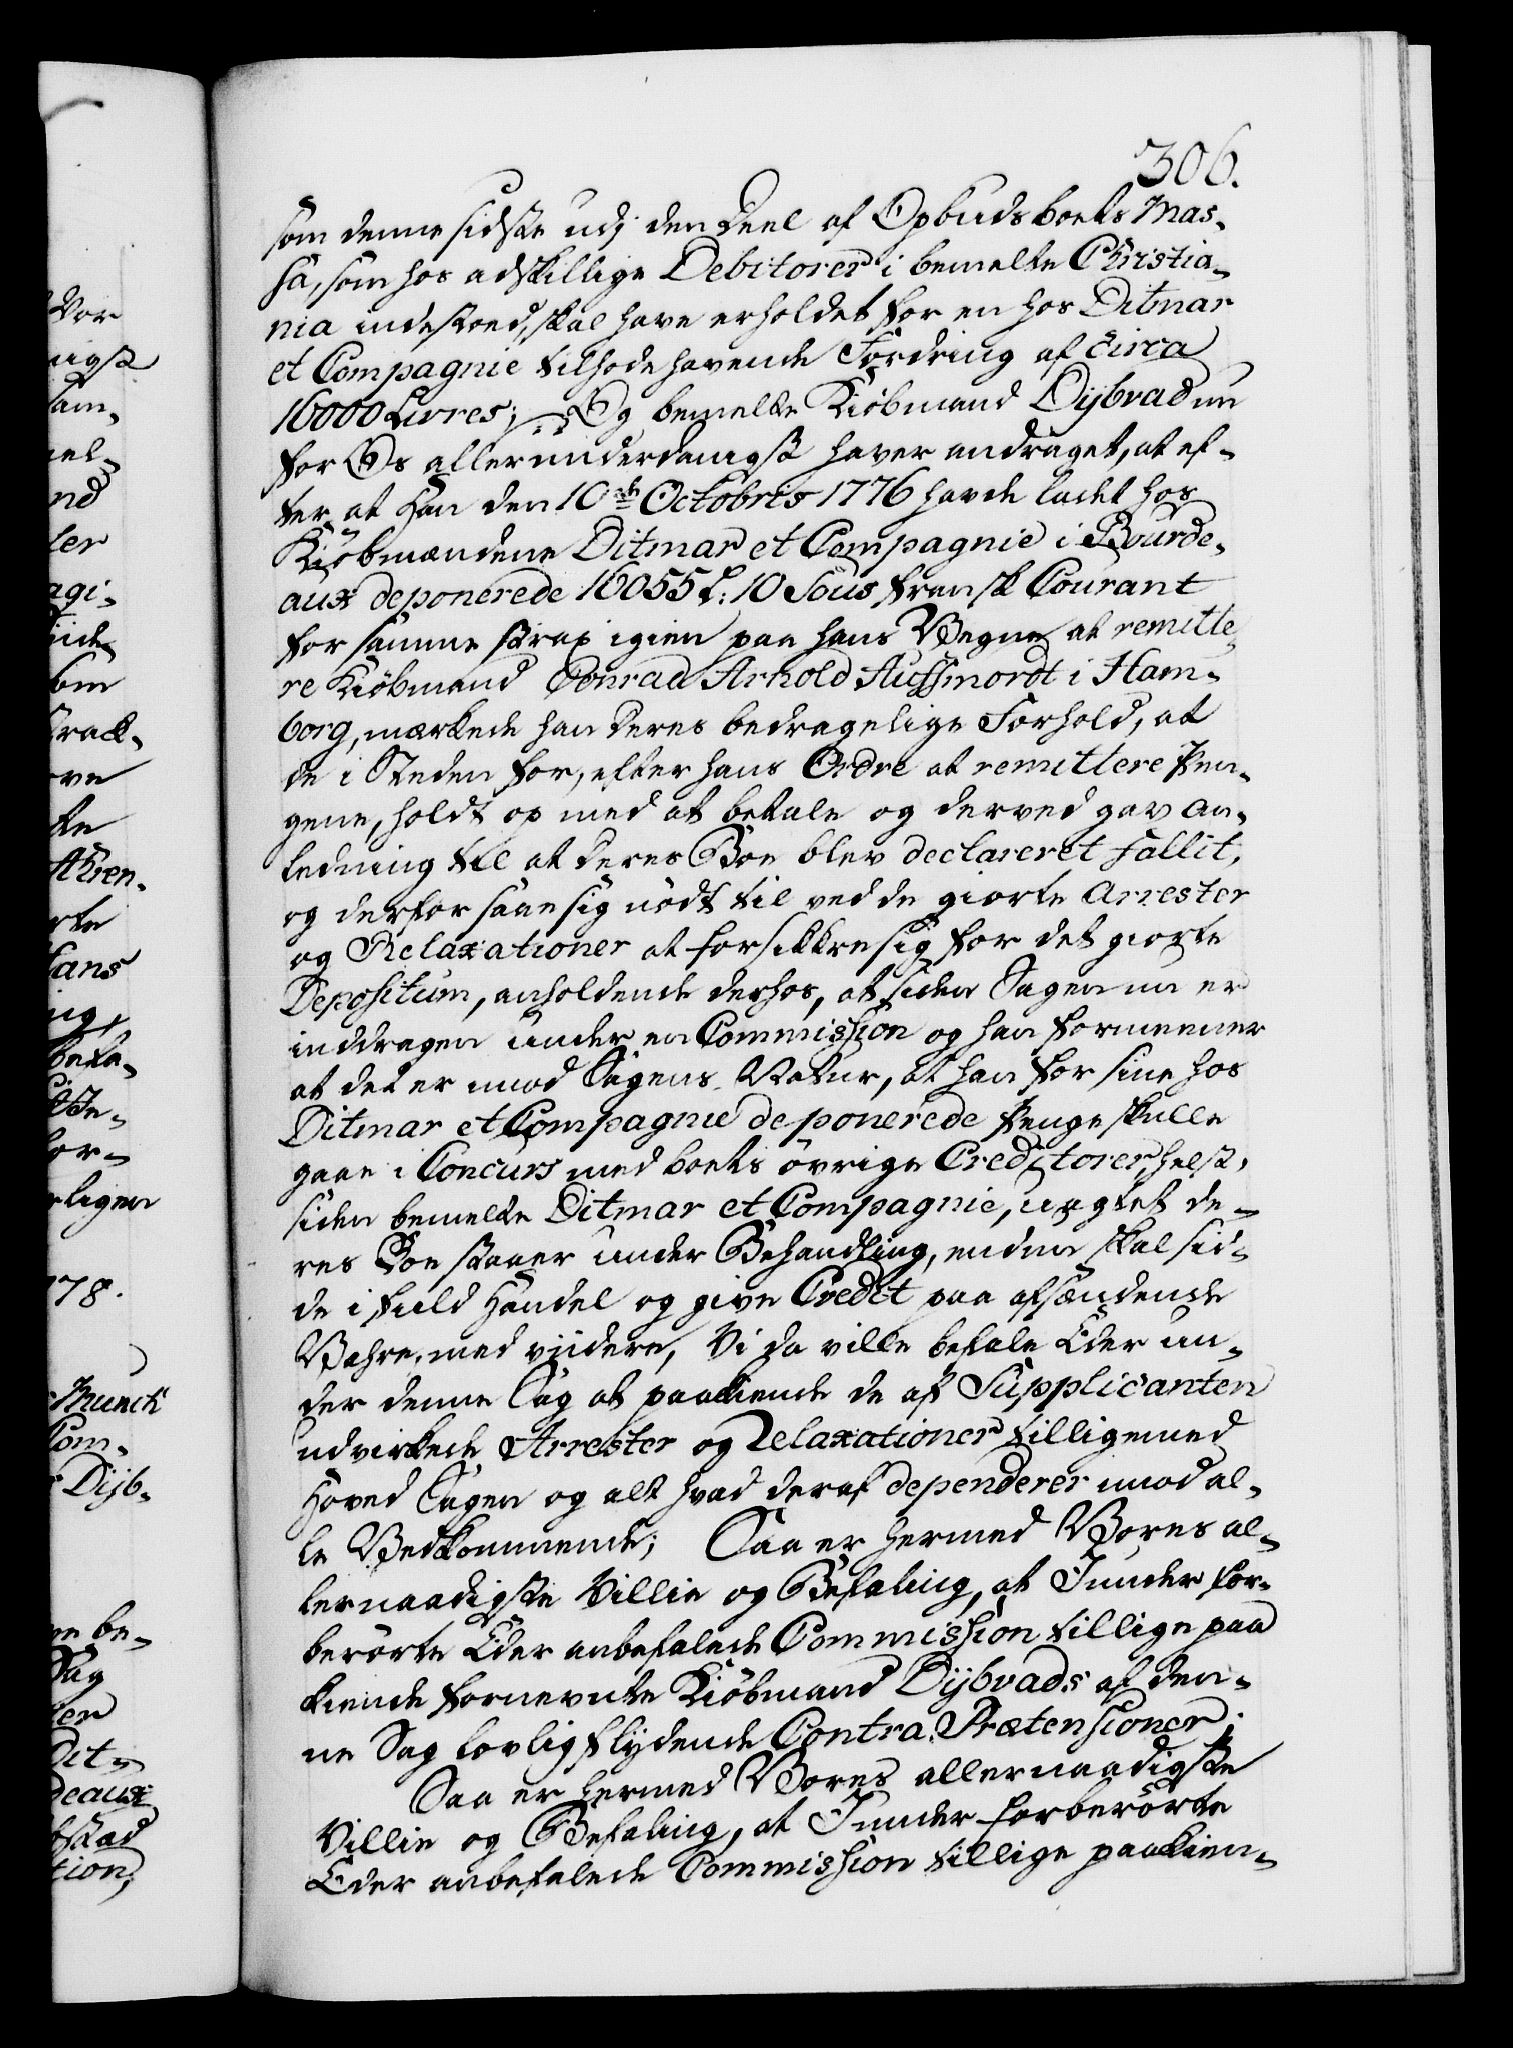 306.
som denne sidste udj den Deel af Opbudsboets Mas-
sa, som hos adskillige Debitorer i bemelte Christia-
nia indestoed, skal have erholdet for en hos Ditmar
et Compagnie tilgodehavende Fordring af circa
16000 Livres; Og bemelte Kiöbmand Dijbvad nu
for Os allerunderdanigst haver andraget, at ef-
ter at Han den 10de Octobris 1776 havde ladet hos
Kiöbmændene Ditmar et Compagnie i Bourde-
aux deponerede 16055 £: 10 Sous fransk Courant
for samme strax igien paa hans Vegne at remitte-
re Kiöbmand Conrad Arnold Auffmordt i Ham-
borg, mærkede han deres bedragelige Forhold, at
de i Steden for, efter hans Ordre at remittere Pen-
gene, holdt op med at betale og derved gav An-
ledning til at deres Boe blev declareret fallit,
og derfor saae sig nödt til ved de giorte Arrester
og Relaxationer at forsikkre sig for det giorte
Depositum, anholdende derhos, at siden Sagen nu er
inddragen under en Commission og han formeener
at det er imod Sagens Natur, at han for sine hos
Ditmar et Compagnie deponerede Penge skulle
gaae i Concurs med boets övrige Creditorer, helst,
siden bemelte Ditmar et Compagnie, uagtet de-
res Boe staaer under Behandling, endnu skal sid-
de i fuld Handel og give Credit paa afsendende
Vahre, med viidere, Vi da ville befale Eder un-
der denne Sag at paakiende de af Supplicanten
udvirkede Arrester og Relaxationer tilligemed
Hoved Sagen og alt hvad deraf dependerer imod al-
le Vedkommende; Saa er hermed Vores al-
lernaadigste Villie og Befaling, at I under for-
berörte Eder anbefalede Commission tillige paa
kiende fornevnte Kiöbmand Dijbvads af den-
ne Sag lovlig flydende Contra. Prætensioner.
Saa er hermed Vores allernaadigste
Villie og Befaling, at I under forberörte
Eder anbefalede Commission tillige paakien-